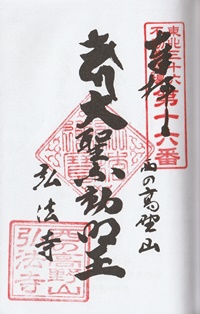 東北三十六
第十六番
奉拝
西の高野山
大聖不動明王
弘法寺
西の高野山
弘法寺